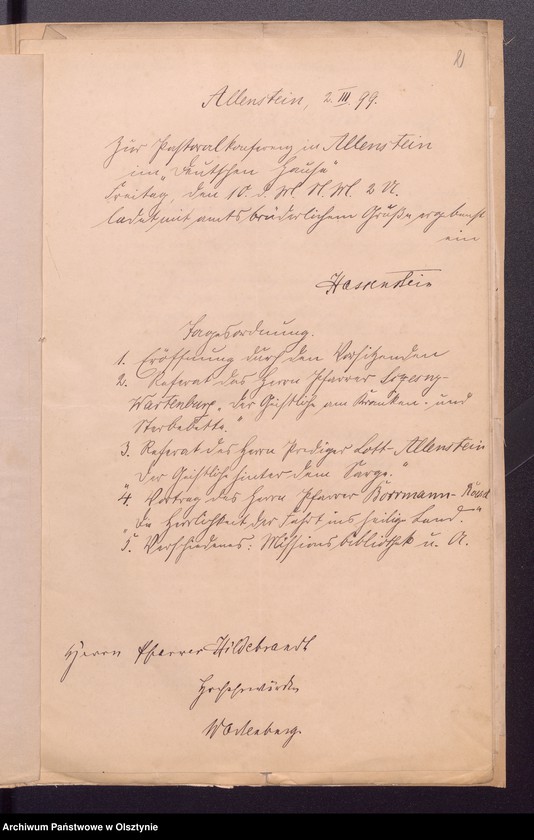 21
Allenstein, 2. III. 99.
Zur Pastoralkonferenz in Allenstein
im „Deutschen Hause“
Freitag, den 10. d. M. N. M. 2 U.
ladet mit amtsbrüderlichem Gruße ergebenst
ein
Hassenstein
Tagesordnung.
1. Eröffnung durch den Vorsitzenden
2. Referat des Herrn Pfarrer
Wartenburg „Der Geistliche am Kranken- und
Sterbebette.“
3. Referat des Herrn Prediger Lott-Allenstein
„Der Geistliche hinter dem Sarge.“
4. Vortrag des Herrn Pfarrer Borrmann-
„Die Herrlichkeit der Fahrt ins heilige Land.“
5. Verschiedenes: Missionsbibliothek u. A.
Herrn Pfarrer Hildebrandt
Hochehrwürden
Archiwum Państwowe w Olsztynie